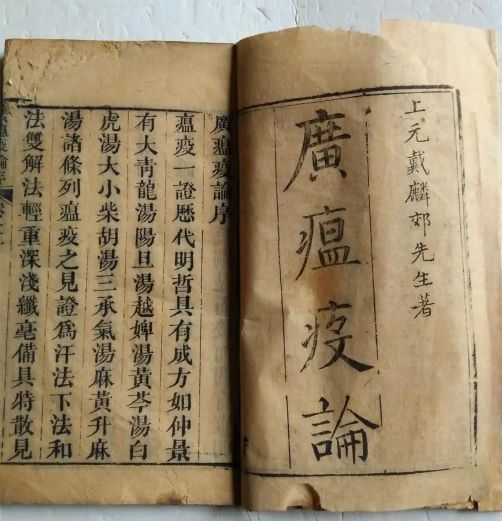 上元戴麟郊先生著
廣瘟疫論
廣瘟疫論序
瘟疫一證歷代明哲具有成方如仲景
有大青龍湯陽旦湯越婢湯黃芩湯白
虎湯大小柴胡湯三承氣湯麻黃升麻
湯諸條列瘟疫之見證爲汗法下法和
法雙解法輕重深淺纖毫備具特散見
瘟疫論序